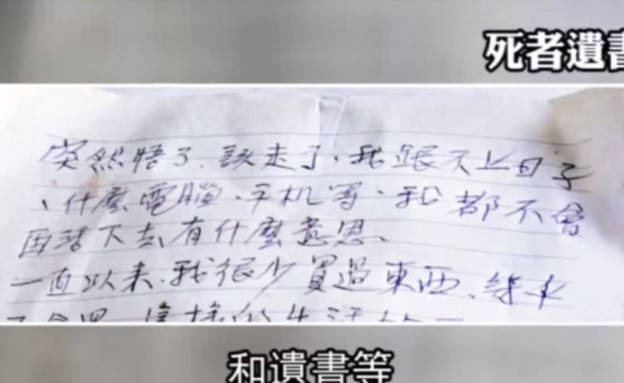 死者遺書
突然悟了.該走了.我跟不上日子
、什麼電腦.手机等.我都不會
再活下去有什麼意思、
一直以来.我很少買過東西、
和遺書等